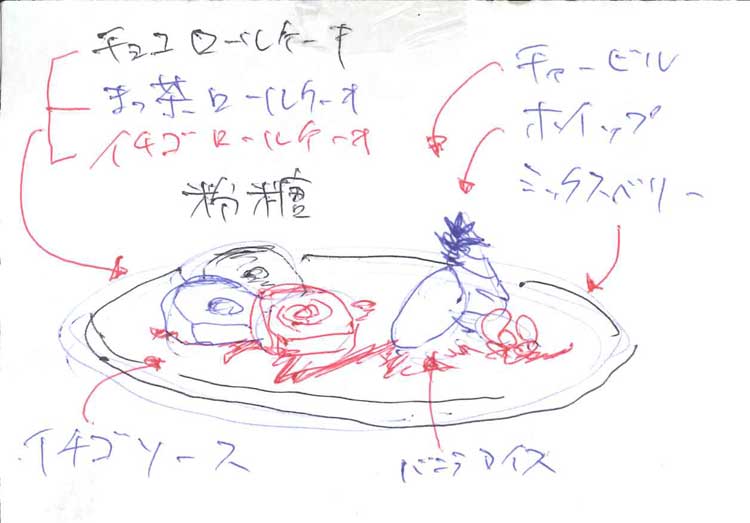 チョコロールケーキ
まっ茶ロールケーオ
イチゴロールケーオ
粉糖
チャービル
ホイップ
ミックスベリー
イチゴソース
バニラアイス